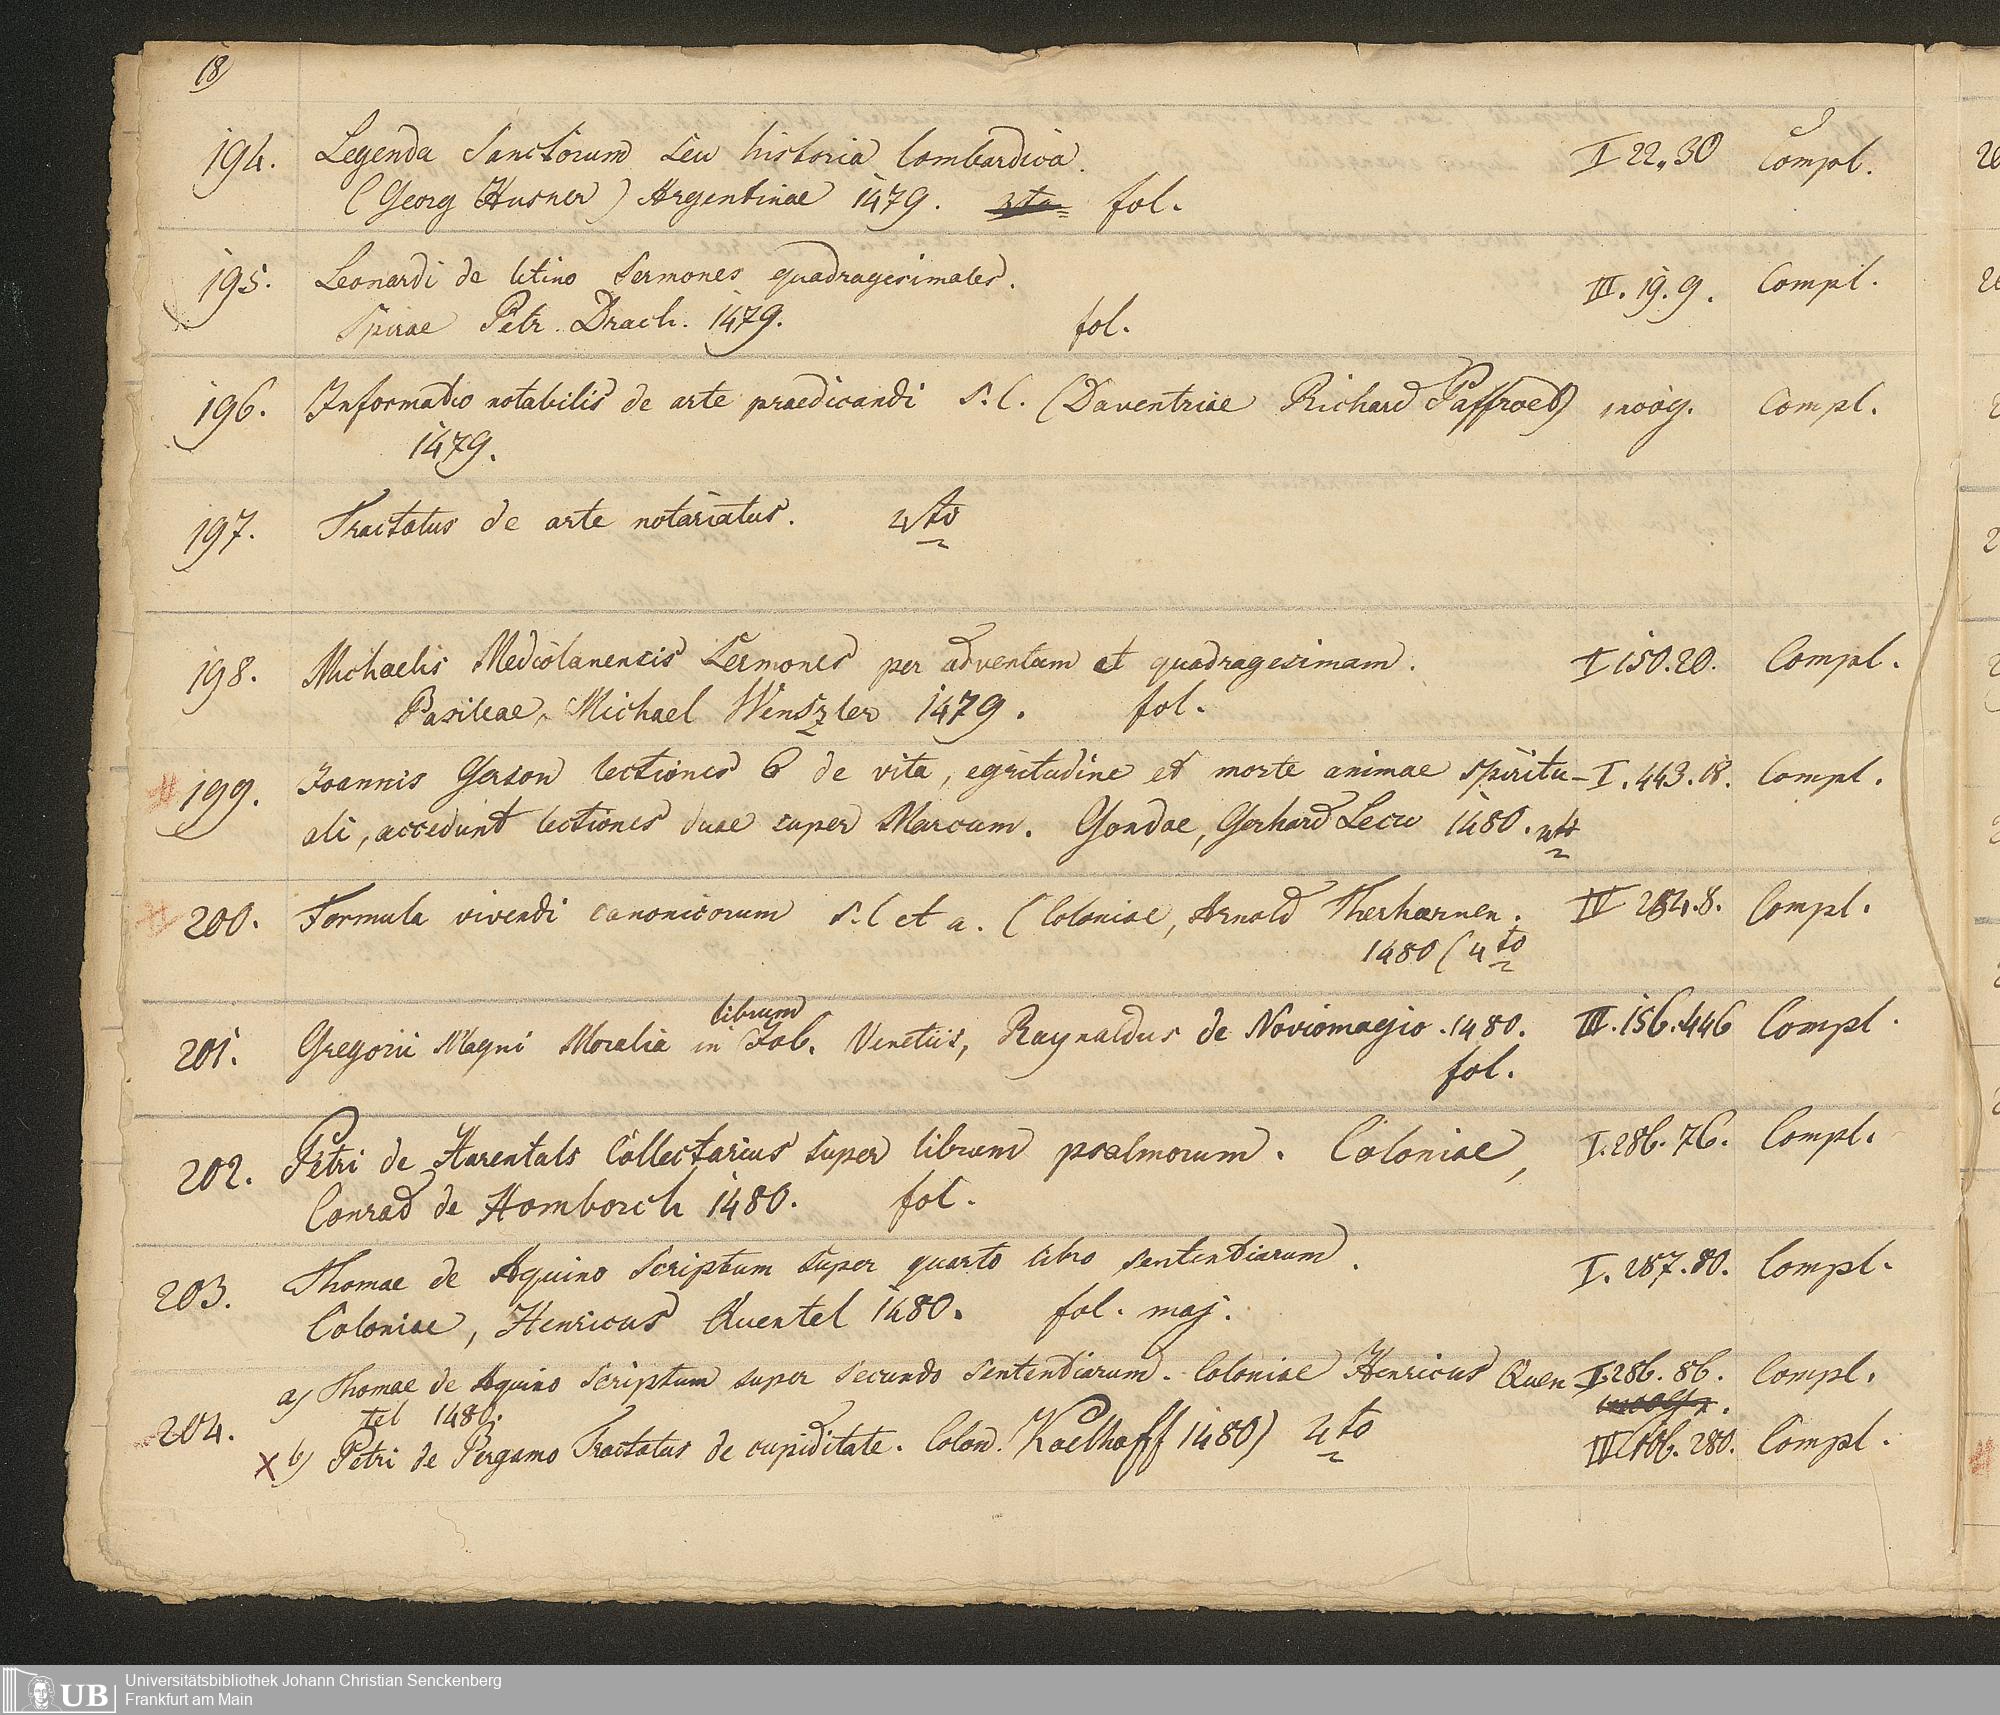 18)
194. Legenda Sanctorum seu historia lombardica. I 22.30 Compl.
(Georg Husner) Argentinae 1479. 4to fol.
195. Leonardi de Utino Sermones quadragesimales. III. 19. 9. Compl.
Spirae Petr. Drach. 1479. fol.
196. Informatio notabilis de arte praedicandi s. l. (Daventriae Richard Paffroed) Compl.
1479.
197. Tractatus de arte notariatus. 4to
198. Michaelis Mediolanensis Sermones per adventum et quadragesimam. I 150.20. Compl.
Basileae, Michael Wenszler 1479. fol.
199. Joannis Gerson lectiones 6 de vita, egritudine et morte animae spiritu- I. 443. 18. Compl.
ali, accedunt lectiones duae super Marcum. Goudae, Gerhard Leeu 1480. 4to
200. Formula vivendi canonicorum s. l et a. (Coloniae, Arnold Therhoernen. IV 284.8. Compl.
1480 ( 4to
librum
201. Gregorii Magni Moralia in Job. Venetiis, Raynaldus de Noviomagio. 1480. III. 156. 446 Compl.
fol.
202. Petri de Harentals Collectarius super librum psalmorum. Coloniae, I. 286. 76. Compl.
Conrad de Homborch 1480. fol.
203. Thomae de Aquino Scriptum super quarto libro sententiarum. I. 287. 80. Compl.
Coloniae, Henricus Quentel 1480. fol. maj.
204. a) Thomae de Aquino Scriptum super secundo sententiarum. Coloniae Henricus Quen- I. 286. 86. Compl.
tel 1480.
x b) Petri de Pergamo Tractatus de cupiditate. Colon. Koelhoff 1480) 4to 280. Compl.
Universitätsbibliothek Johann Christian Senckenberg
UB Frankfurt am Main